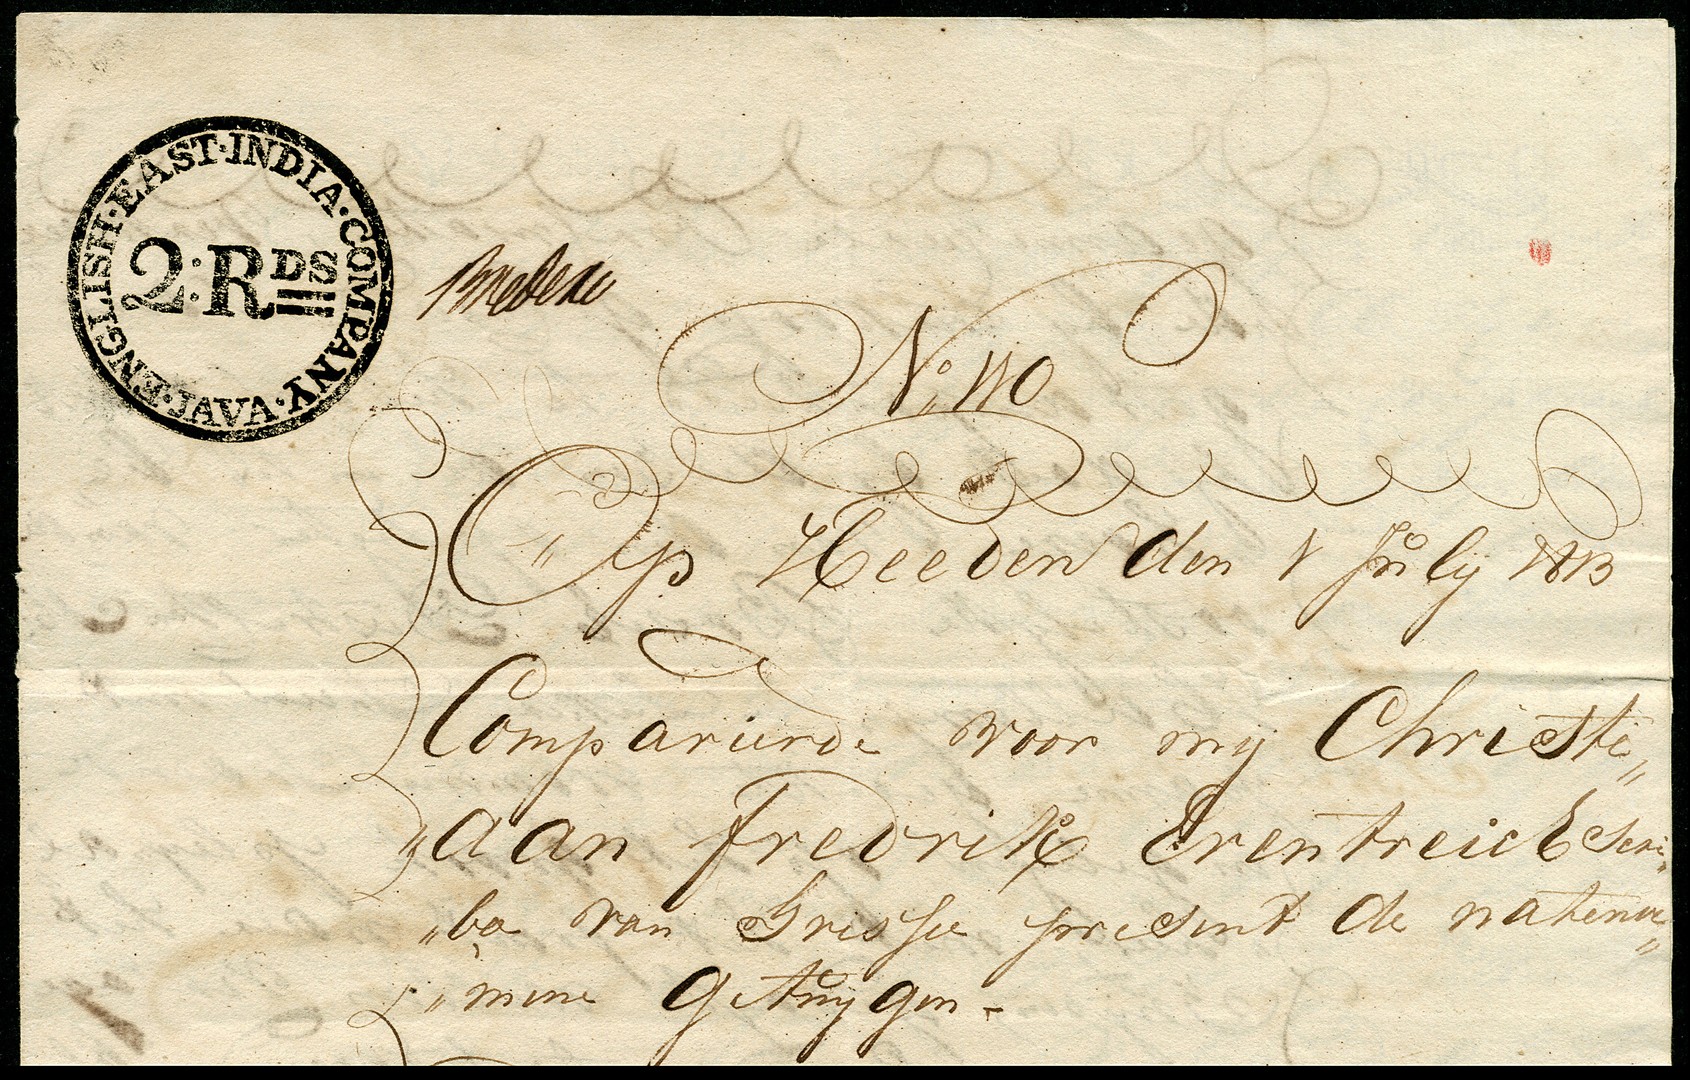 ENGLISH·EAST·INDIA·COMPANY·JAVA·
2:RDS
No 110
Op Heeden den 1 July 1813
Comparierde voor my Christi„
„aan Fredrik Erentreich Scri„
„ba van Grissee present de natenoe„
„mene getuygen.